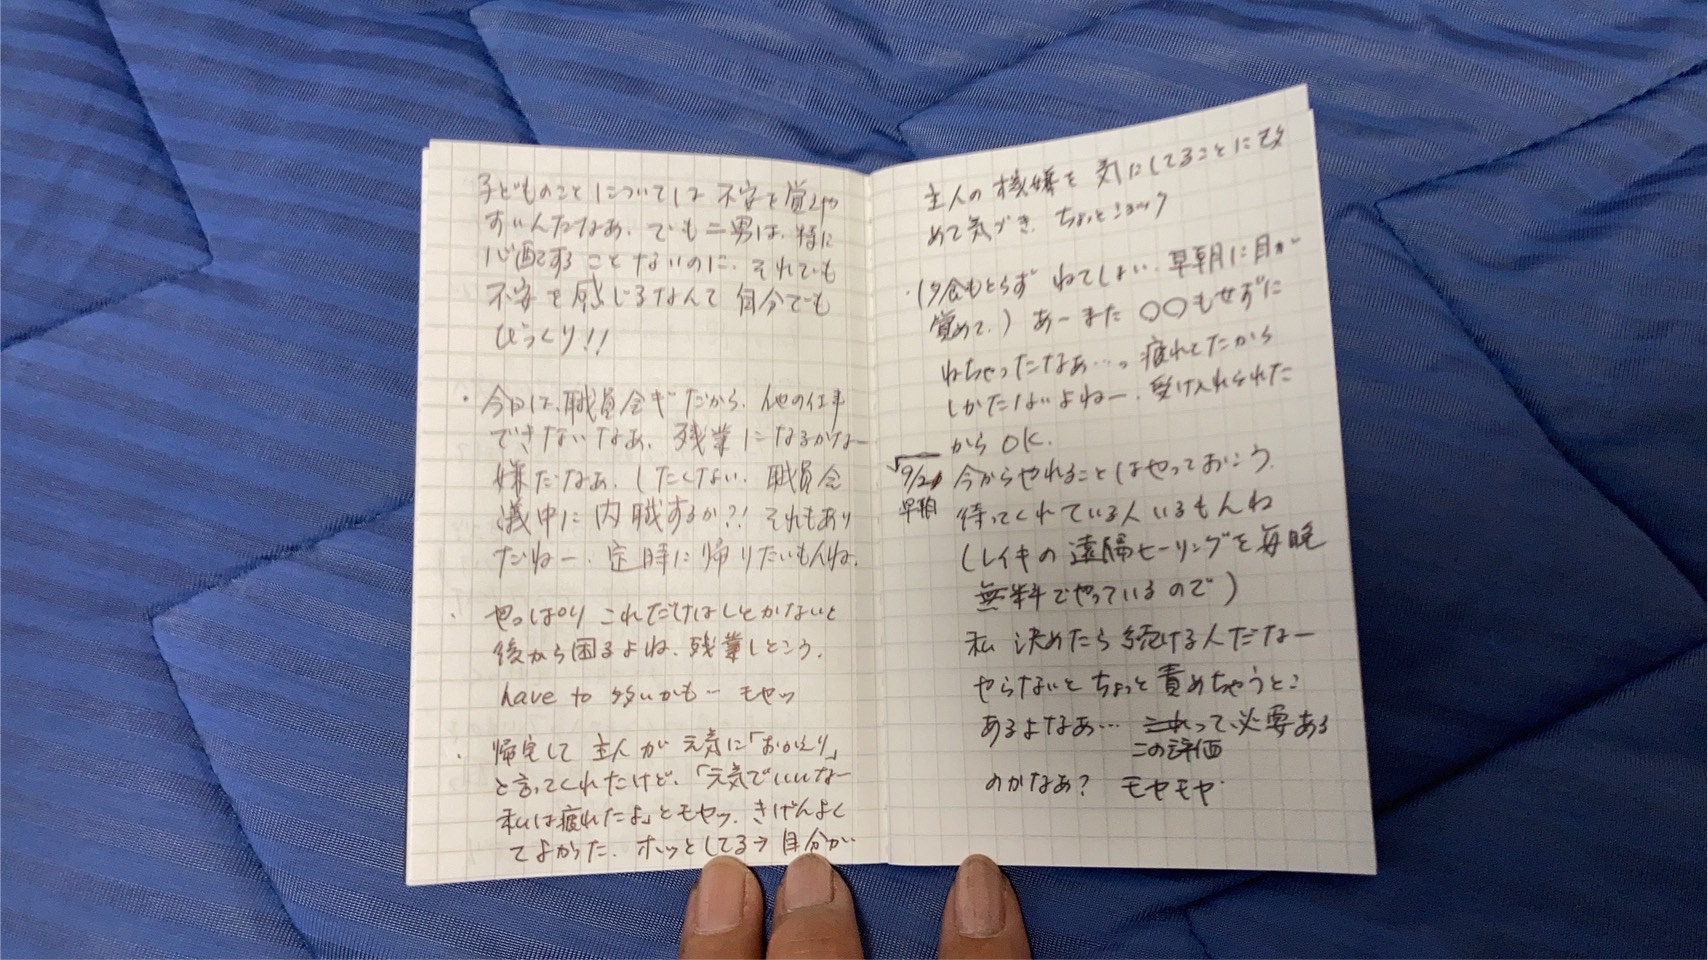 子どものことについては不安を覚えや
すいんだなあ. でも二男は、特に
心配することないのに、それでも
不安を感じるなんて自分でも
びっくり!!
・今日は、職員会ギだから、他の仕事
できないなあ、残業になるかなー
嫌だなあ、したくない、職員会
議中に内職するか?! それもあり
だねー、定時に帰りたいもんね。
・やっぱりこれだけはしとかないと
後から困るよね、残業しとこう.
have to 多いかも… モヤッ
・帰宅して主人が元気に「おかえり」
と言ってくれたけど、「元気でいいなー
私は疲れたよ」とモヤッ. きげんよく
てよかった. ホッとしてる→自分が
主人の機嫌を気にしてることに改
めて気づき ちょっとショック
・(夕食もとらずねてしまい、早朝に目が
覚めて.) あーまた〇〇もせずに
ねちゃったなあ…。疲れてたから
しかたないよねー、受け入れられた
から OK.
9/21 今からやれることはやっておこう.
早朝 待ってくれている人いるもんね
(レイキの遠隔ヒーリングを毎晩
無料でやっているので)
私 決めたら続ける人だなー
やらないとちょっと責めちゃうとこ
あるよなあ… これって必要ある
この評価
のかなあ? モヤモヤ